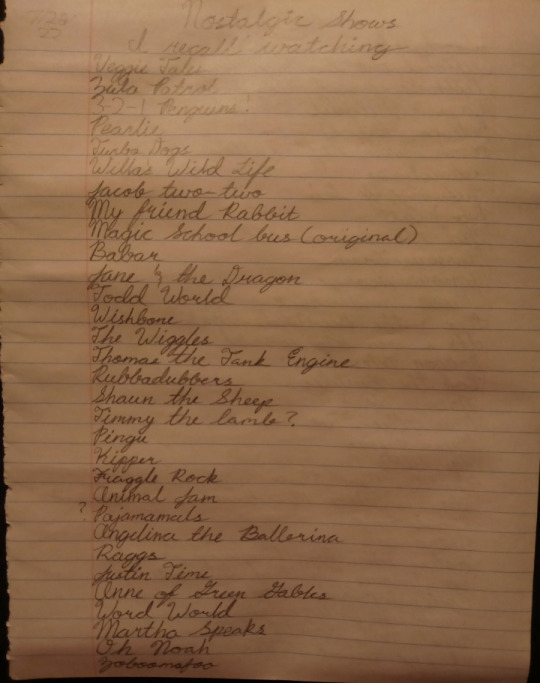 7/28/
22
Nostalgic Shows
I recall watching
Veggie Tale
Zula Patrol
3-2-1 Penguins!
Pearlie
Turbo Dogs
Willa's Wild Life
Jacob two-two
My friend Rabbit
Magic School bus (original)
Babar
Jane & the Dragon
Todd World
Wishbone
The Wiggles
Thomas the Tank Engine
Rubbadubbers
Shaun the Sheep
Timmy the lamb?
Pingu
Kipper
Fraggle Rock
Animal Jam
? Pajamamals
Angelina the Ballerina
Raggs
Justin Time
Anne of Green Gables
Word World
Martha Speaks
Oh Noah
Zoboomafoo